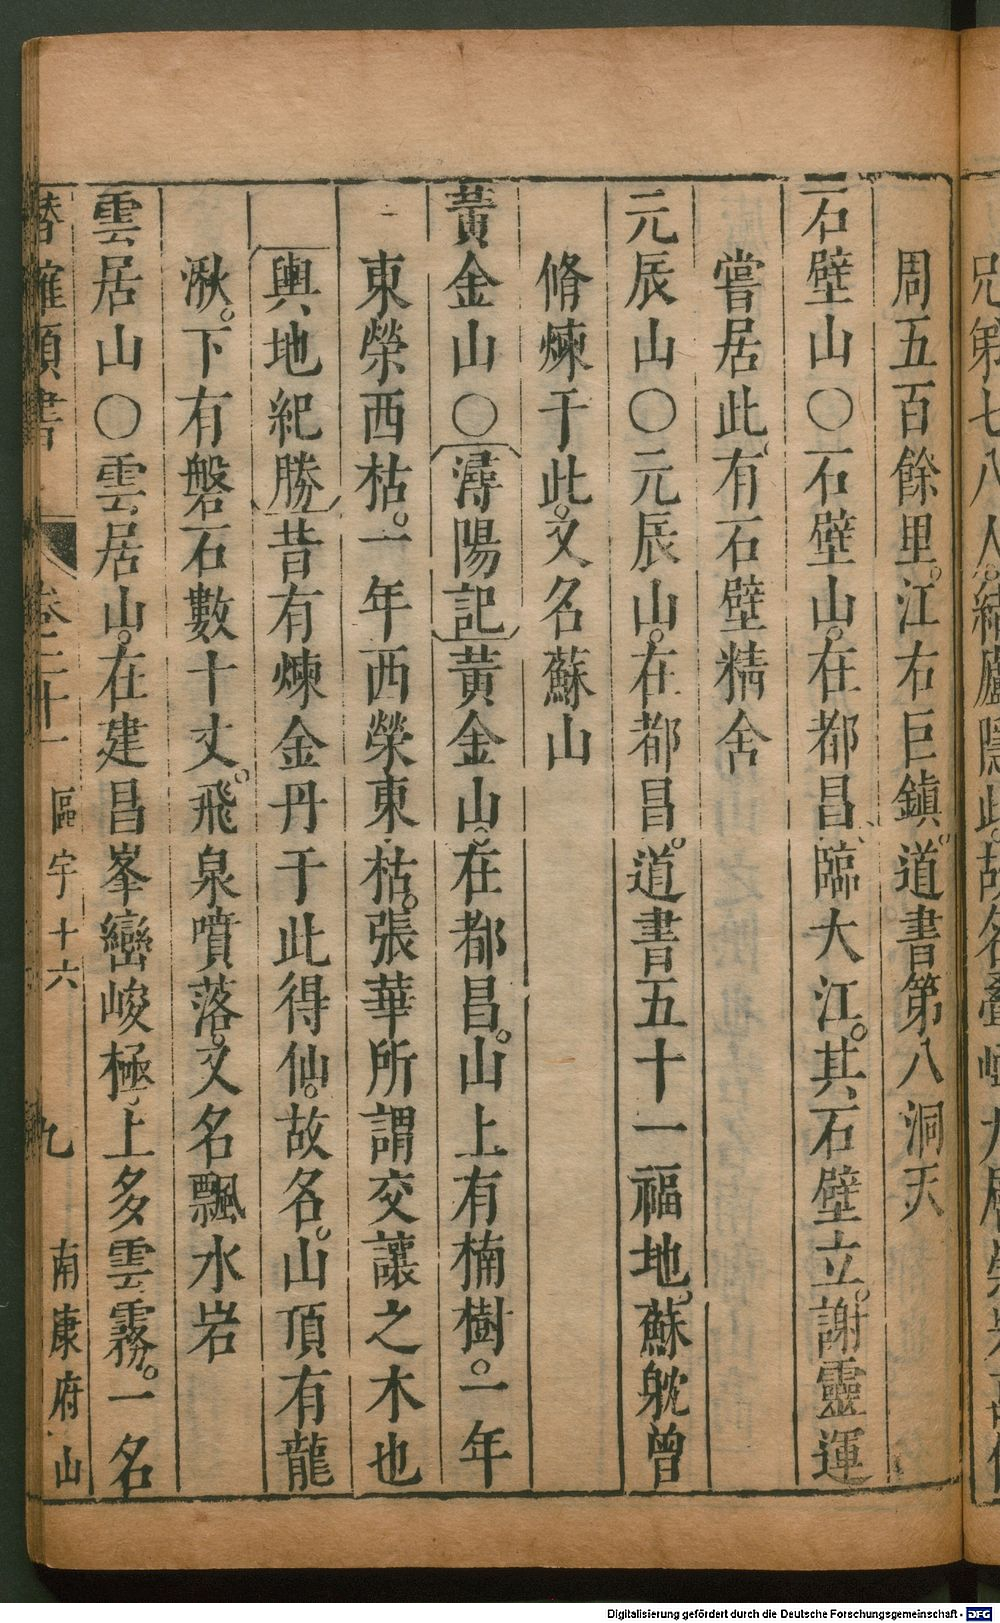 周五百餘里。江右巨鎮。道書第八洞天
石壁山○石壁山。在都昌、臨大江。其石壁立。謝靈運
嘗居此、有石壁精舍
元辰山○元辰山。在都昌。道書五十一福地。蘇躭曾
脩煉于此。又名蘇山
黃金山○潯陽記黃金山。在都昌。山上有楠樹。一年
東榮西枯。一年西榮東枯。張華所謂交讓之木也
輿地紀勝昔有煉金丹于此得仙。故名。山頂有龍
湫。下有磐石數十丈。飛泉噴落。又名飄水岩
雲居山○雲居山。在建昌峯巒峻極、上多雲霧。一名
卷二十一 區宇十六 九 南康府山
Digitalisierung gefördert durch die Deutsche Forschungsgemeinschaft - DFG